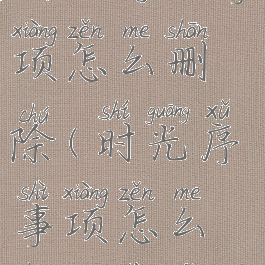 xiàng zěn me shān
项怎么删
chú shí guāng xǔ
除(时光序
shì xiàng zěn me
事项怎么